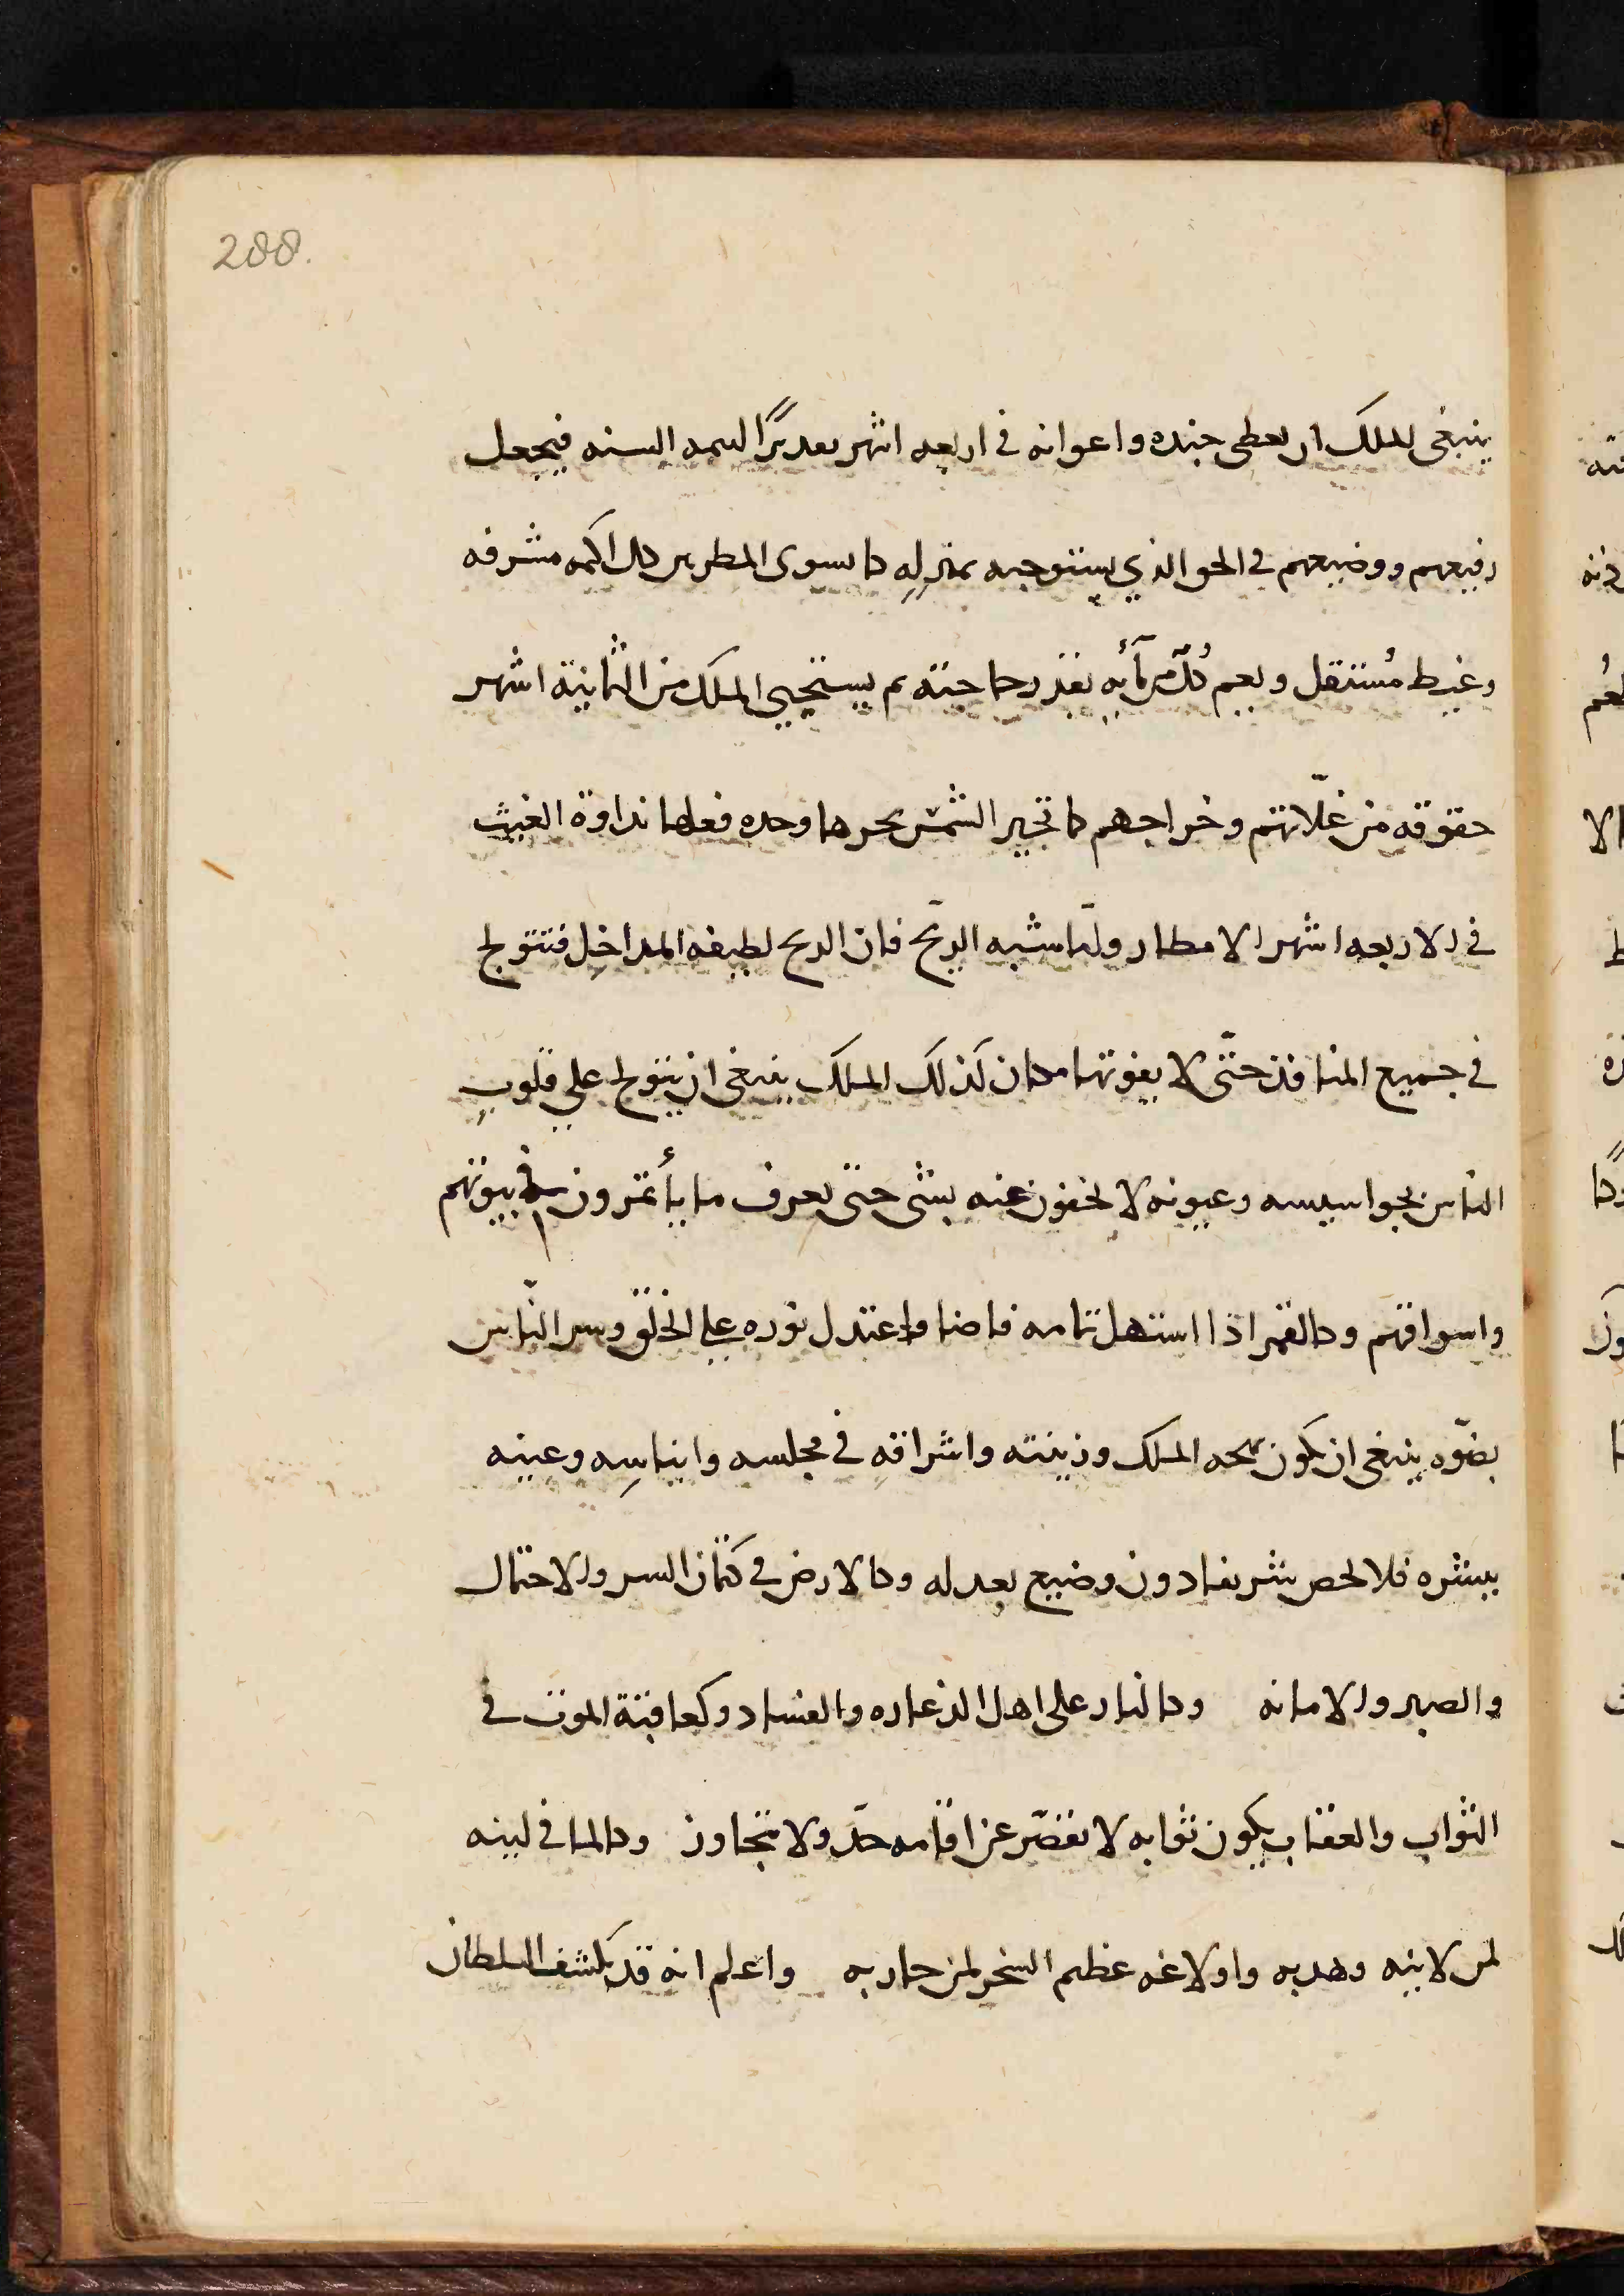 288.
ينبغى للملك ان يعطى جنده واعوانه فى اربعه اشهر السنه فيجعل
رفيعهم ووضيعهم فى الحق الذي يستوجبه بمنزله كما يسوى المطر بين كل اكمه مشرفه
وغيط مُستقل ويعم كُلّ من مآئه بقدر حاجته ثم يستجبي الملك من الثمانية اشهر
حقوقه من غلّاتهم وخراجهم كما تجبى الشمس بحرها وحده فعلها نداوة الغيث
فى الاربعه اشهر الامطار ولمّا شبه الريح فان الريح لطيفه المداخِل فتتولج
فى جميع المنافذ حتّى لا يفوتها مكان كذلك الملك ينبغى ان يتولج علي قلوبِ
الناس بجواسيسه وعيونه لا يخفون عنه بشى حتى يعرف ما يأتمرون فى بيوتهم
واسواقهم وكالقمر اذا استهل تمامه فاضا واعتدل نوره على الخلق وسر النّاس
بضوّه ينبغى ان يكون بهجه الملك وزينته واشراقهِ فى مجلسه وايناسِه وعينه
ببشره فلا يخص شريفا دون وضيع بعدله وكالارض فى كتمان السر والاحتمال
والصبر والامانه وكالنار على اهل الذعاره والفساد وكعاقبة الموت فى
الثواب والعقاب يكون ثوابه لا يقصّر عن اقامه حدّ ولا يتجاوز وكالما فى لينه
لمن لاينه وهدبه واولاغه عظيم السخر لمن حاربه واعلم انه قد يكشف السلطان